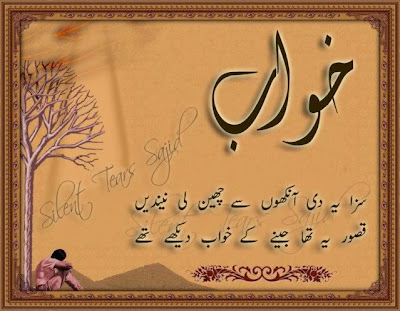 خواب
Silent Tears Sajid
سزا یہ دی آنکھوں سے چھین لی نیندیں
Silent Tears Sajid
قصور یہ تھا جینے کے خواب دیکھے تھے